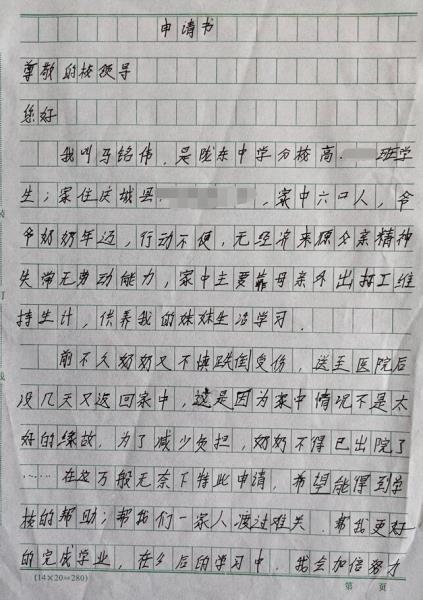 申请书
尊敬的校领导
您好
我叫马铭伟，是陇东中学分校高 班学
生；家住庆城县 ，家中六口人，爷
爷奶奶年迈，行动不便，无经济来源父亲精神
失常无劳动能力，家中主要靠母亲外出打工维
持生计，供养我的妹妹生活学习．
前不久奶奶又不慎跌倒受伤，送至医院后
没几天又返回家中，这是因为家中情况不是太
好的缘故．为了减少负担，奶奶不得已出院了
……在这万般无奈下特此申请，希望能得到学
校的帮助；帮我们一家人渡过难关．帮我更好
的完成学业，在今后的学习中．我会加倍努力
(14×20=280)
第 页